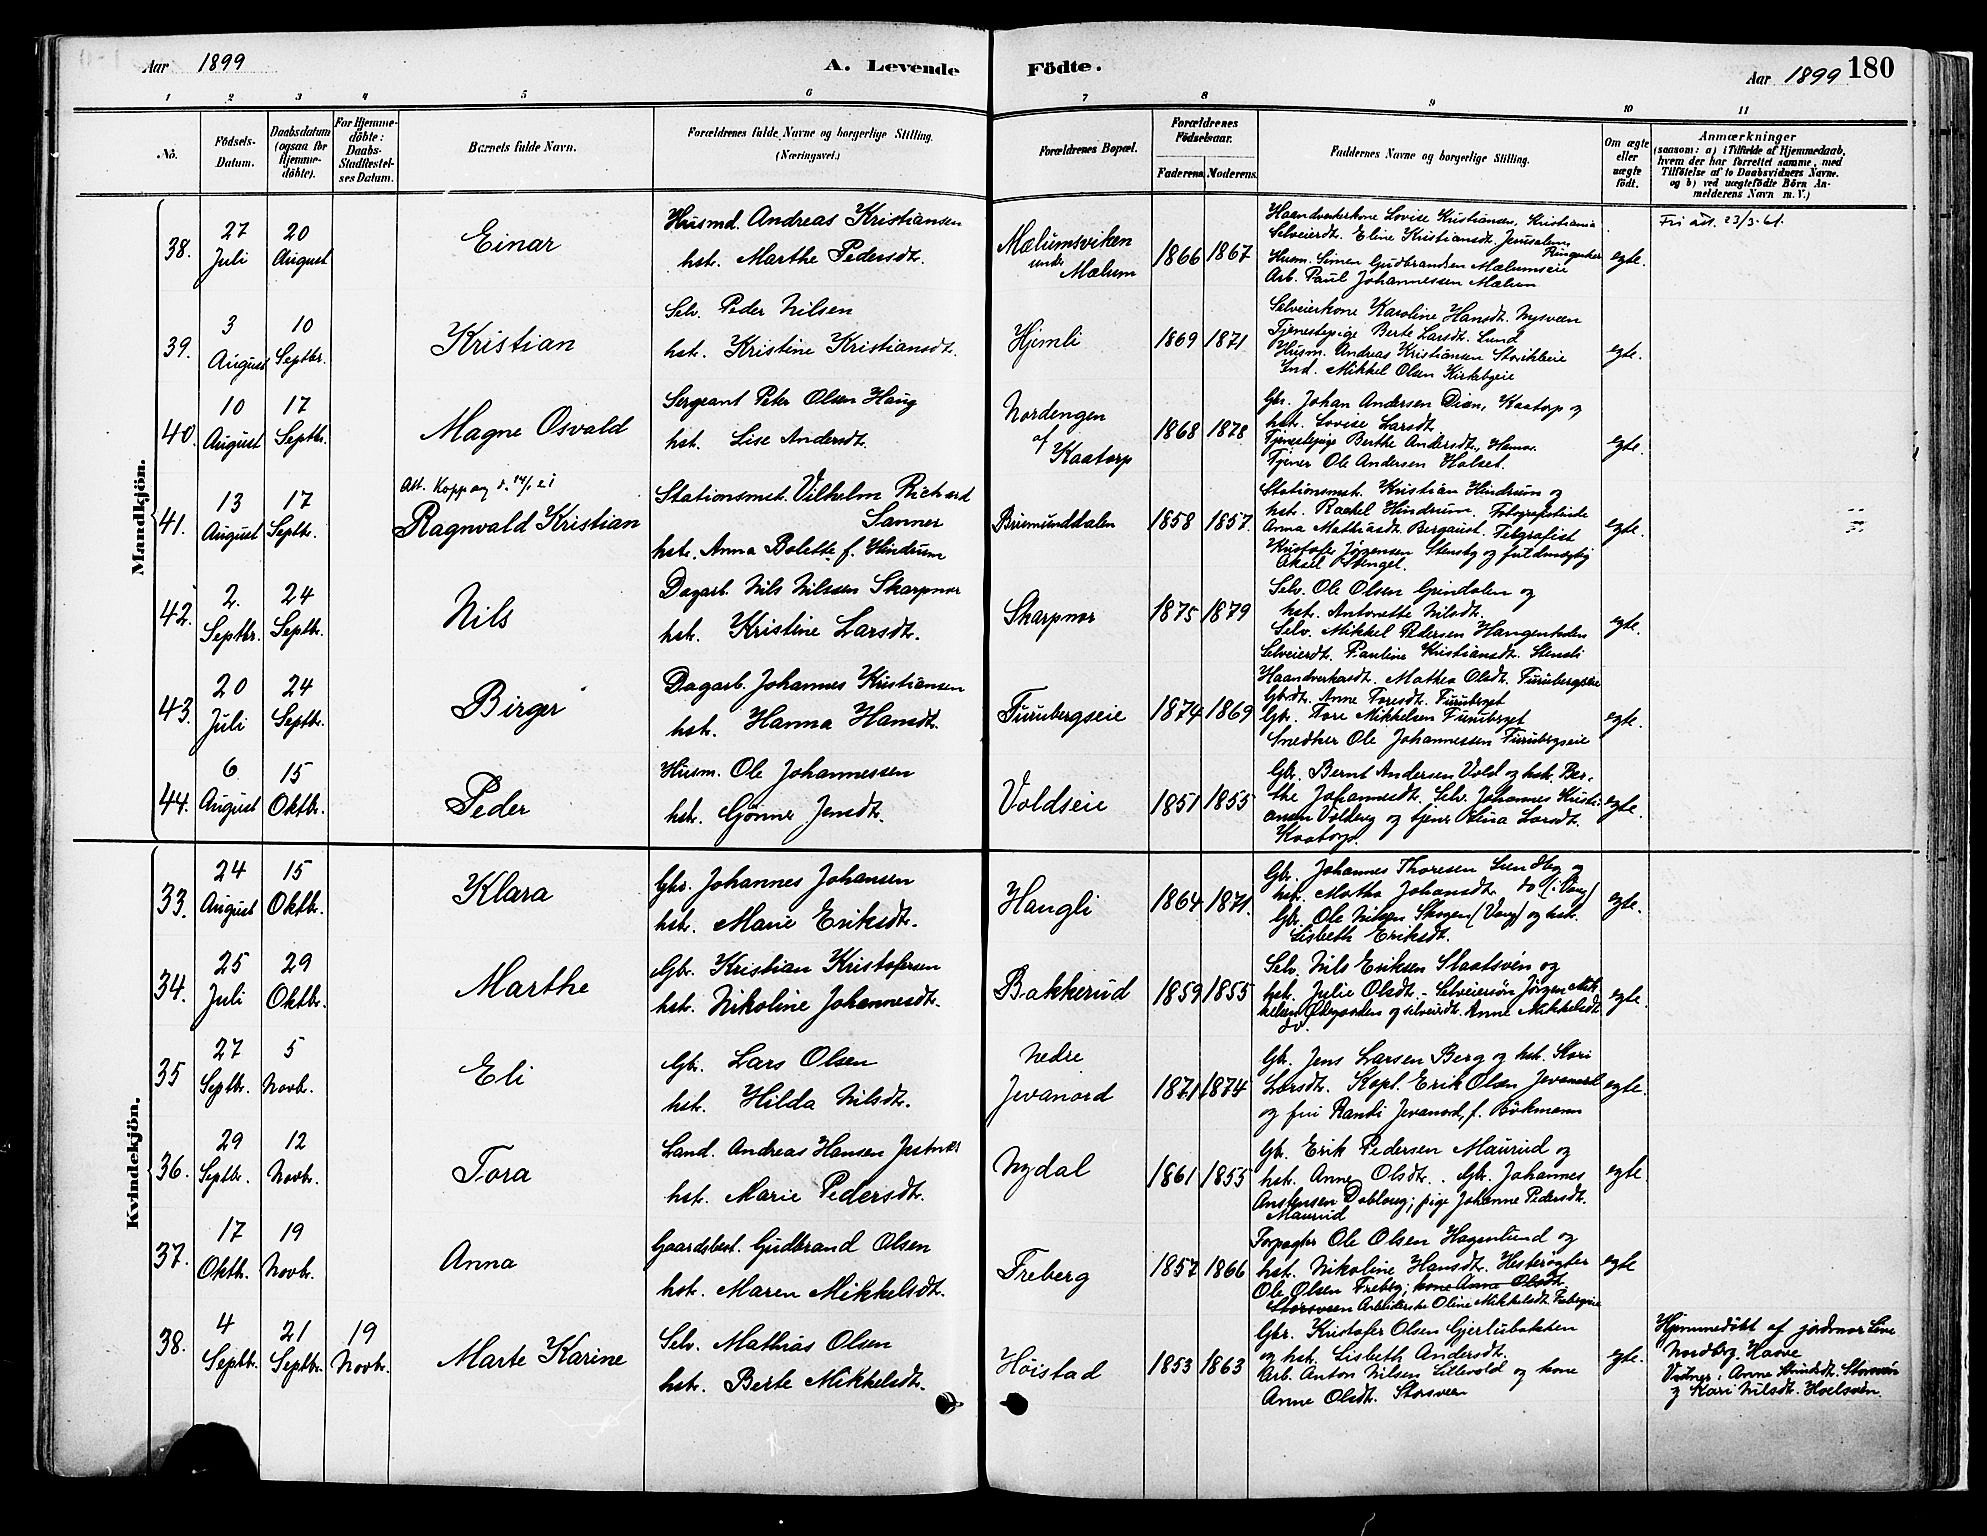 Aar 1899
A. Levende
Födte.
Aar 1899 180
1 2 3 4 5 6 7 8 9 10 11
No.
Födsels-Datum.
Daabsdatum (ogsaa for Hjemme-döbte).
For Hjemme-döbte: Daabs-Stadfæstel-ses Datum.
Barnets fulde Navn.
Forældrenes fulde Navne og borgerlige Stilling. (Næringsvei.)
Forældrenes Bopæl.
Forældrenes Födselsaar.
Faderens. Moderens.
Faddernes Navne og borgerlige Stilling.
Om ægte eller uægte födt.
Anmærkninger
(saasom: a) i Tilfælde af Hjemmedaab, hvem der har forrettet samme, med Tilföielse af to Daabsvidners Navne. og b) ved uægtefödte Börn An-melderens Navn m. V.)
Mandkjön.
38. 27 Juli 20 August
Einar
Husmd. Andreas Kristiansen
hst. Marthe Pedersdt.
Mælumsviken under Mælum
1866 1867
Haandverkerkone Lovise Kristiansen, Kristiania
Selveierdt. Eline Kristiansdt. Jerusalem, Ringsaker
Husm. Simen Gudbrandsen Mælumseie
Arb. Paul Johannessen Mælum
egte.
Fri att. 23/3-61.
39. 3 August 10 Septbr.
Kristian
Selv. Peder Nilsen
hst. Kristine Kristiansdt.
Hjemli
1869 1871
Selveierkone Karoline Hansdt. Nysveen
Tjenestepige Berte Larsdt. Lund
Husm. Andreas Kristiansen
Ind. Mikkel Olsen Kirkebyeie
egte.
40. 10 August 17 Septbr.
Magne Osvald
Sergeant Peter Olsen Haug
hst. Lise Andersdt.
Nordengen af Kaatorp
1868 1878
Gbr. Johan Andersen Kaatorp og
hst. Lovise Larsdt.
Tjenestepige Berthe Andersdt.
Tjener Ole Andersen Holset.
egte.
41. 13 August 17 Septbr.
Att. Koppang
Ragnvald Kristian
Stationsmst. Vilhelm Richard Sanner
hst. Anna Bolette f. Hindrum
1858 1857.
Stationsmst. Kristian Hindrum og
hst. Rachel Hindrum.
Anna Mathiasdt. Bergaust. Telgrafist
Kristofer Jørgensen Stensby og fuldmægtig
Aksel Stengel.
egte.
42. 2. Septbr. 24 Septbr.
Nils
Dagarb. Nils Nilssen Skarpnor
hst. Kristine Larsdt.
Skarpnor
1875 1879
Selv. Ole Olsen Grindalen og
hst. Antonette Nilsdt.
Selv. Mikkel Pedersen
Selveierdt. Pauline Kristiansdt. Stensli
egte.
43. 20 Juli 24 Septbr.
Birger
Dagarb. Johannes Kristiansen
hst. Hanna Hansdt.
Furubergseie
1874 1869
Haandverkerdt. Mathea Olsdt. Furubergseie
Gbrdt. Anne Toresdt. Furuberget
Gbr. Tore Mikkelsen Furuberget
Snedker Ole Johannessen Furubergseie
egte.
44. 6 August 15 Oktbr.
Peder
Husm. Ole Johannessen
hst. Gønner Jensdt.
Voldseie
1851 1855
Gbr. Bernt Andersen Vold og hst. Ber-
the Johannesdt. Selv. Johannes Kristi-
ansen Volderg og tjener Stina Larsdt.
Kaatorp.
egte.
Kvindekjön.
33. 24 August 15 Oktbr.
Klara
Gbr. Johannes Johansen
hst. Marie Eriksdt.
Haugli
1864 1871.
Gbr. Johannes Thoresen og
hst. Martha Johansdt. do (i Vang)
Gbr. Ole Nilsen Skogen (Vang) og hst.
Lisbeth Eriksdt.
egte.
34. 25 Juli 29 Oktbr.
Marthe
Gbr. Kristian Kristofersen
hst. Nikoline Johannesdt.
Bakkerud
1859 1855
Selv. Nils Eriksen Staatsvén og
hst. Julie Olsdt. - Selveiersøn Jörgen Mik-
kelsen Ödegaarden og selveierdt. Anne Mikkelsdt
do.
egte.
35 27 Septbr. 5 Novbr.
Eli
Gbr. Lars Olsen
hst. Hilda Nilsdt.
Nedre Jevanord
1871 1874
Gbr. Jens Larsen Berg og hst. Kari
Larsdt. Kapt. Erik Olsen Jevanord
og frui Randi Jevanord, f. Bökmann
egte.
36. 29 Septbr. 12 Novbr.
Tora
Land. Andreas Hansen
hst. Marie Pedersdt.
Nydal
1861 1855
Gbr. Erik Pedersen Maurud og
hst. Anne Olsdt. Gbr. Johannes
Anstensen Dobloug; pige Johanne Pedersdt.
Maurud
egte.
37. 17 Oktbr. 19 Novbr.
Anna
Gaardsbest. Gudbrand Olsen
hst. Maren Mikkelsdt.
Freberg
1857 1866
Forpagter Ole Olsen Hagenlund og
hst. Nikoline Hansdt.
Ole Olsen Freberg; kone Anne Olsdt.
Storsveen Arbeiderske Oline Mikkelsdt.
egte
38. 4 Septbr. 21 Septbr. 19 Novbr.
Marte Karine
Selv. Mathias Olsen
hst. Berte Mikkelsdt.
Höistad
1853 1863
Gbr. Kristofer Olsen Gjerlubakken
og hst. Lisbeth Andersdt.
Arb. Anton Nilsen Lillevold og kone
Anne Olsdt. Storsveen
egte.
Hjemmedöbt af jordmor Line
Nordberg, Haave
Vidner: Anne Storsvén
og Kari Nilsdt. Hoelsvén.